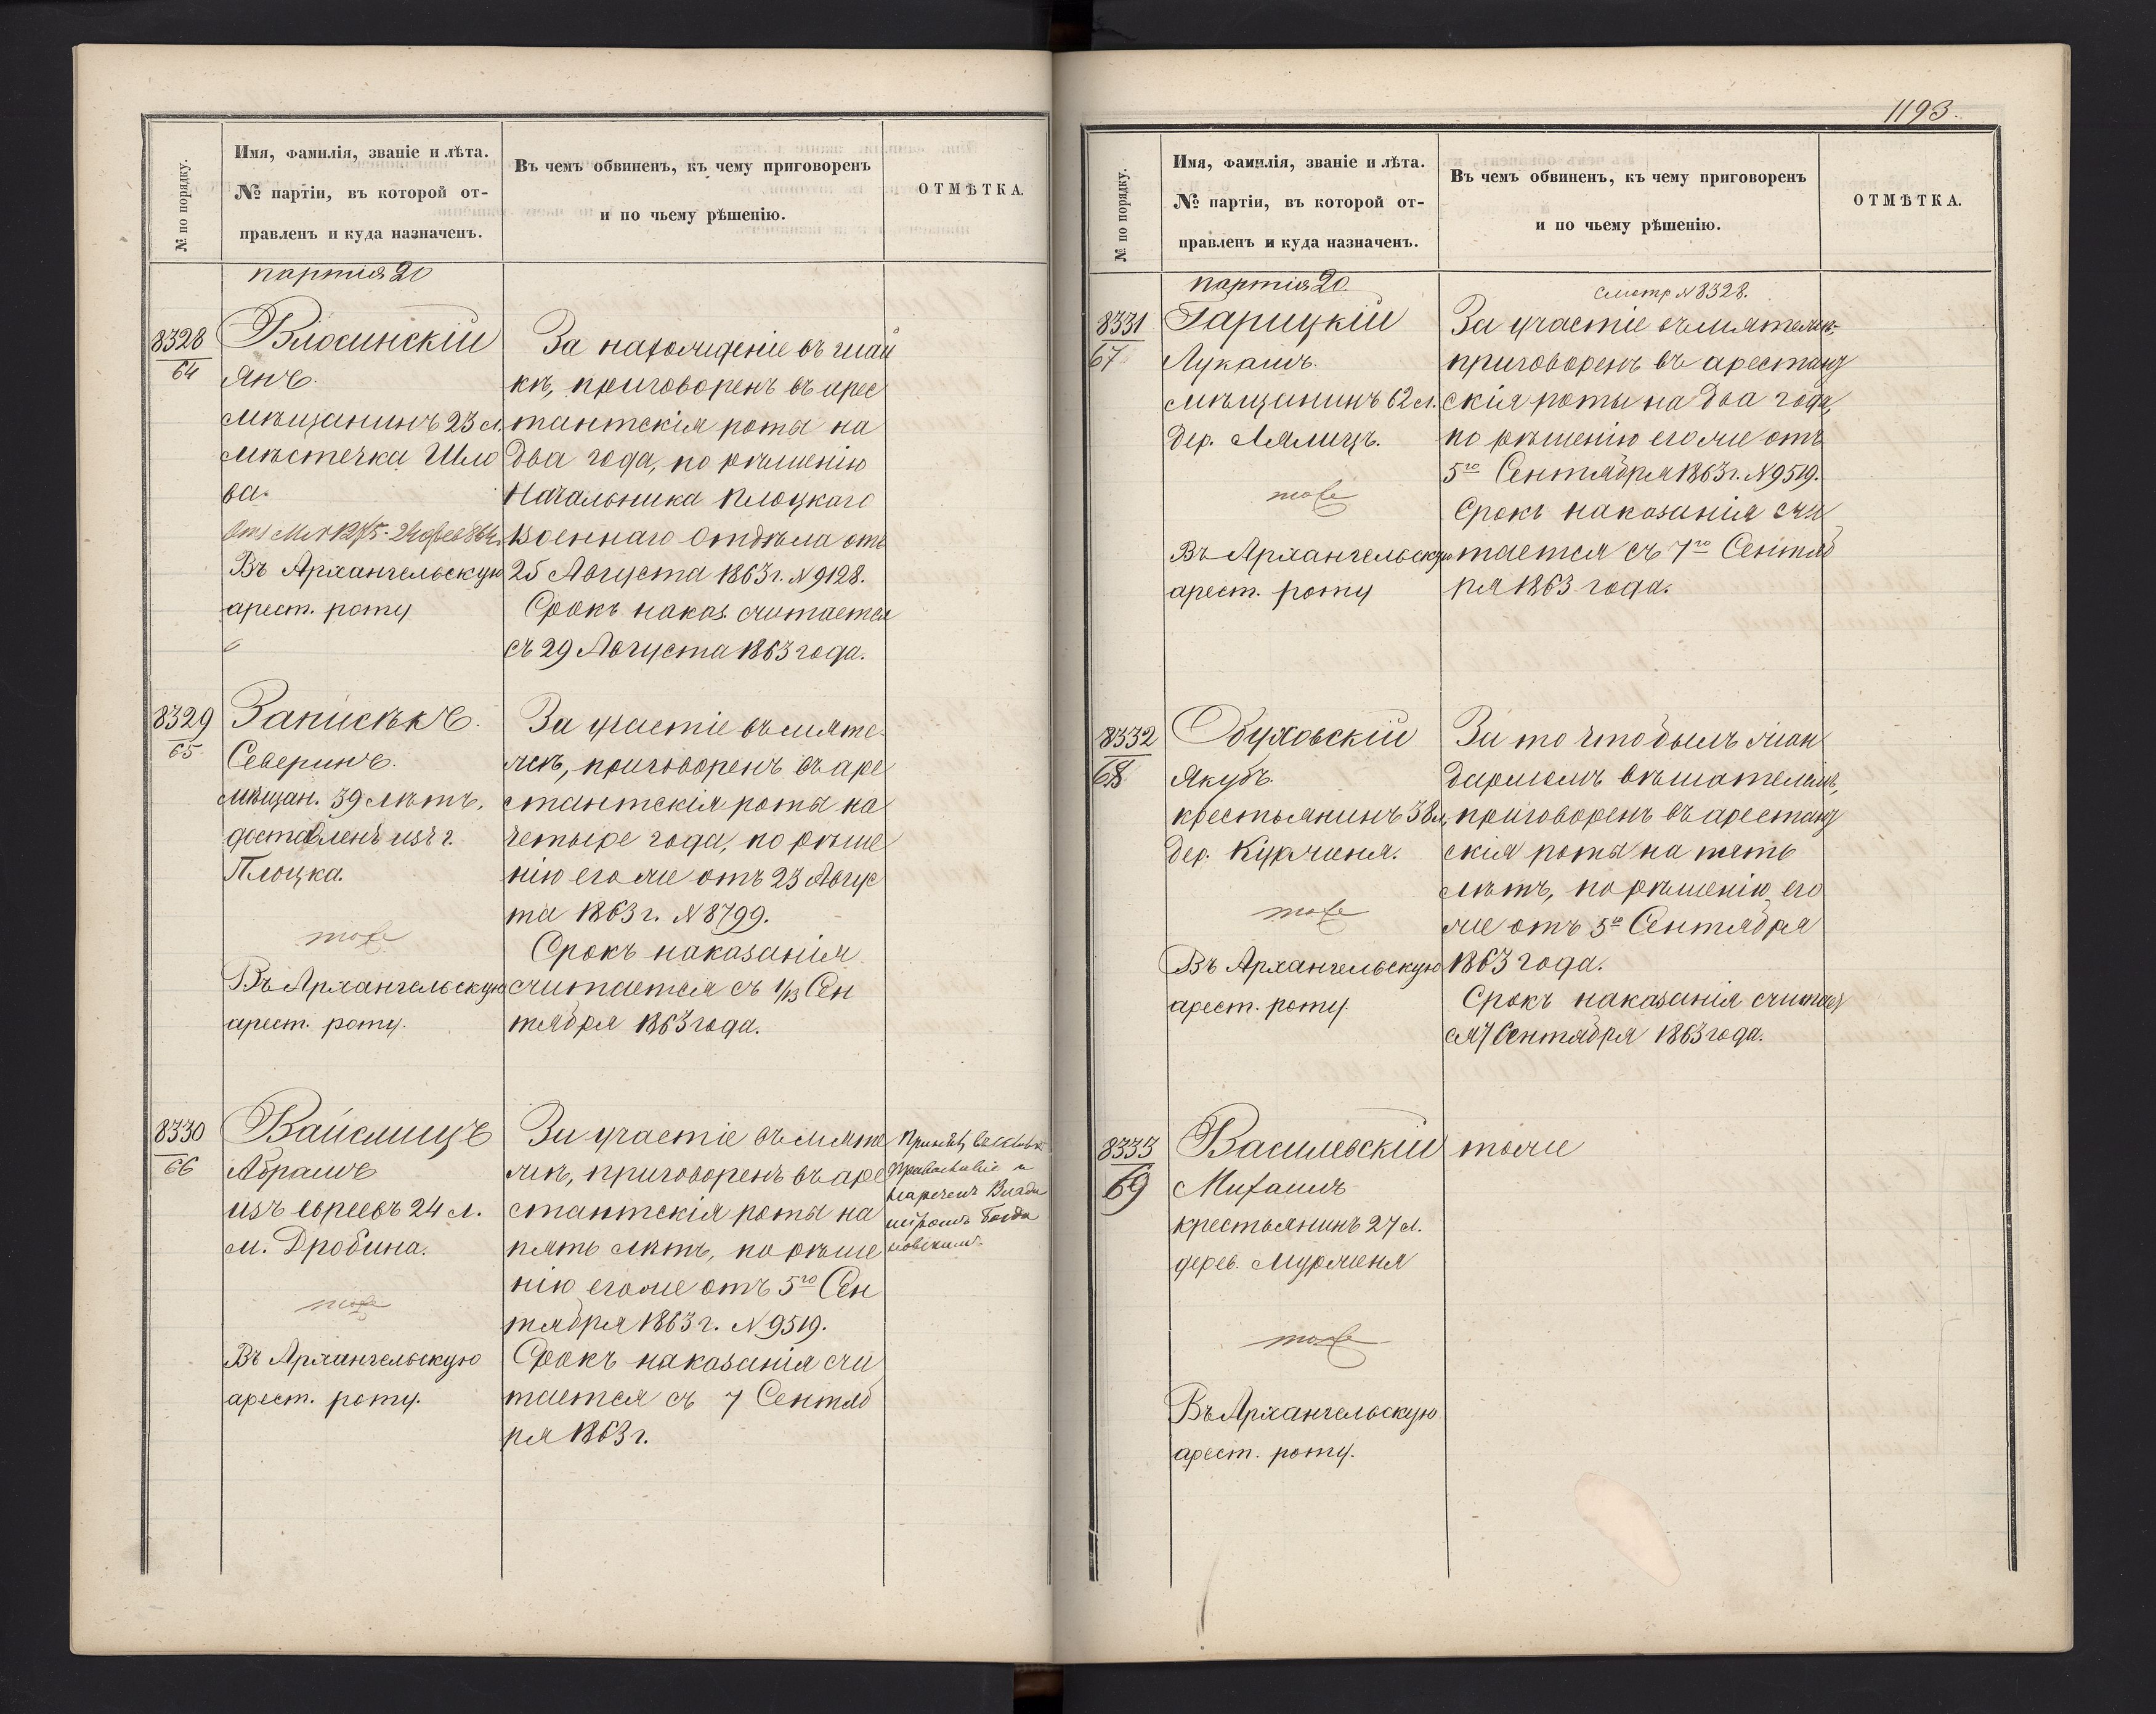 № по порядку.
Имя, фамилія, званіе и лѣта.
№ партіи, въ которой от-
правленъ и куда назначенъ.
Въ чемъ обвиненъ, къ чему приговоренъ
и по чьему рѣшенію.
ОТМѢТКА.
партія 20
8328
64
Влосинскій
Янъ.
мѣщанинъ 23 л.
мѣстечка Шло
ва.
Въ Архангельскую
арест. роту
За нахожденіе въ шай
кѣ, приговоренъ въ арес
тантскія роты на
два года, по рѣшенію
Начальника Плоцкаго
Военнаго Отдѣла отъ
25 Августа 1863 г. № 9128.
Срокъ наказ. считается
съ 29 Августа 1863 года.
8329
65
Записѣкъ.
Северинъ.
мѣщан. 39 лѣтъ,
доставленъ изъ г.
Плоцка.
тоже
Въ Архангельскую
арест. роту.
За участіе въ мяте
жѣ, приговоренъ въ аре
стантскія роты на
четыре года, по рѣше
нію его же отъ 23 Авгус
та 1863 г. № 8799.
Срокъ наказанія
считается съ 1/13 Сен
тября 1863 года.
8330
66
Вайсмицъ
Абрамъ
изъ евреевъ 24 л.
м. Дробина.
тоже
Въ Архангельскую
арест. роту.
За участіе въ мяте
жѣ, приговоренъ въ аре
стантскія роты на
пять лѣтъ, по рѣше
нію его же отъ 5го Сен
тября 1863 г. № 9519.
Срокъ наказанія счи
тается съ 7 Сентяб
ря 1863 г.
Православіе и
нареченъ Влади
міромъ Богда
новскимъ
1193.
№ по порядку.
Имя, фамилія, званіе и лѣта.
№ партіи, въ которой от-
правленъ и куда назначенъ.
Въ чемъ обвиненъ, къ чему приговоренъ
и по чьему рѣшенію.
ОТМѢТКА.
партія 20.
8331
67
Гарицкій
Лукашъ.
мѣщанинъ 62 л.
дер. Лялицъ.
тоже
Въ Архангельскую
арест. роту
смотр № 8328.
За участіе въ мятежѣ
приговоренъ въ арестант
скія роты на два года,
по рѣшенію его же отъ
5го Сентября 1863 г. № 9519.
Срокъ наказанія счи
тается съ 7го Сентяб
ря 1863 года.
8332
68
Обуховскій
Якубъ.
крестьянинъ 38 л,
дер. Куржиня.
тоже
Въ Архангельскую
арест. роту.
За то что былъ жан
дармомъ вѣшателемъ,
приговоренъ въ арестант
скія роты на пять
лѣтъ, по рѣшенію его
же отъ 5го Сентября
1863 года.
Срокъ наказанія считает
ся 7 Сентября 1863 года.
8333
69
Василевскій
Михаилъ
крестьянинъ 27 л.
дерев. Мурженя
тоже
Въ Архангельскую
арест. роту.
тоже